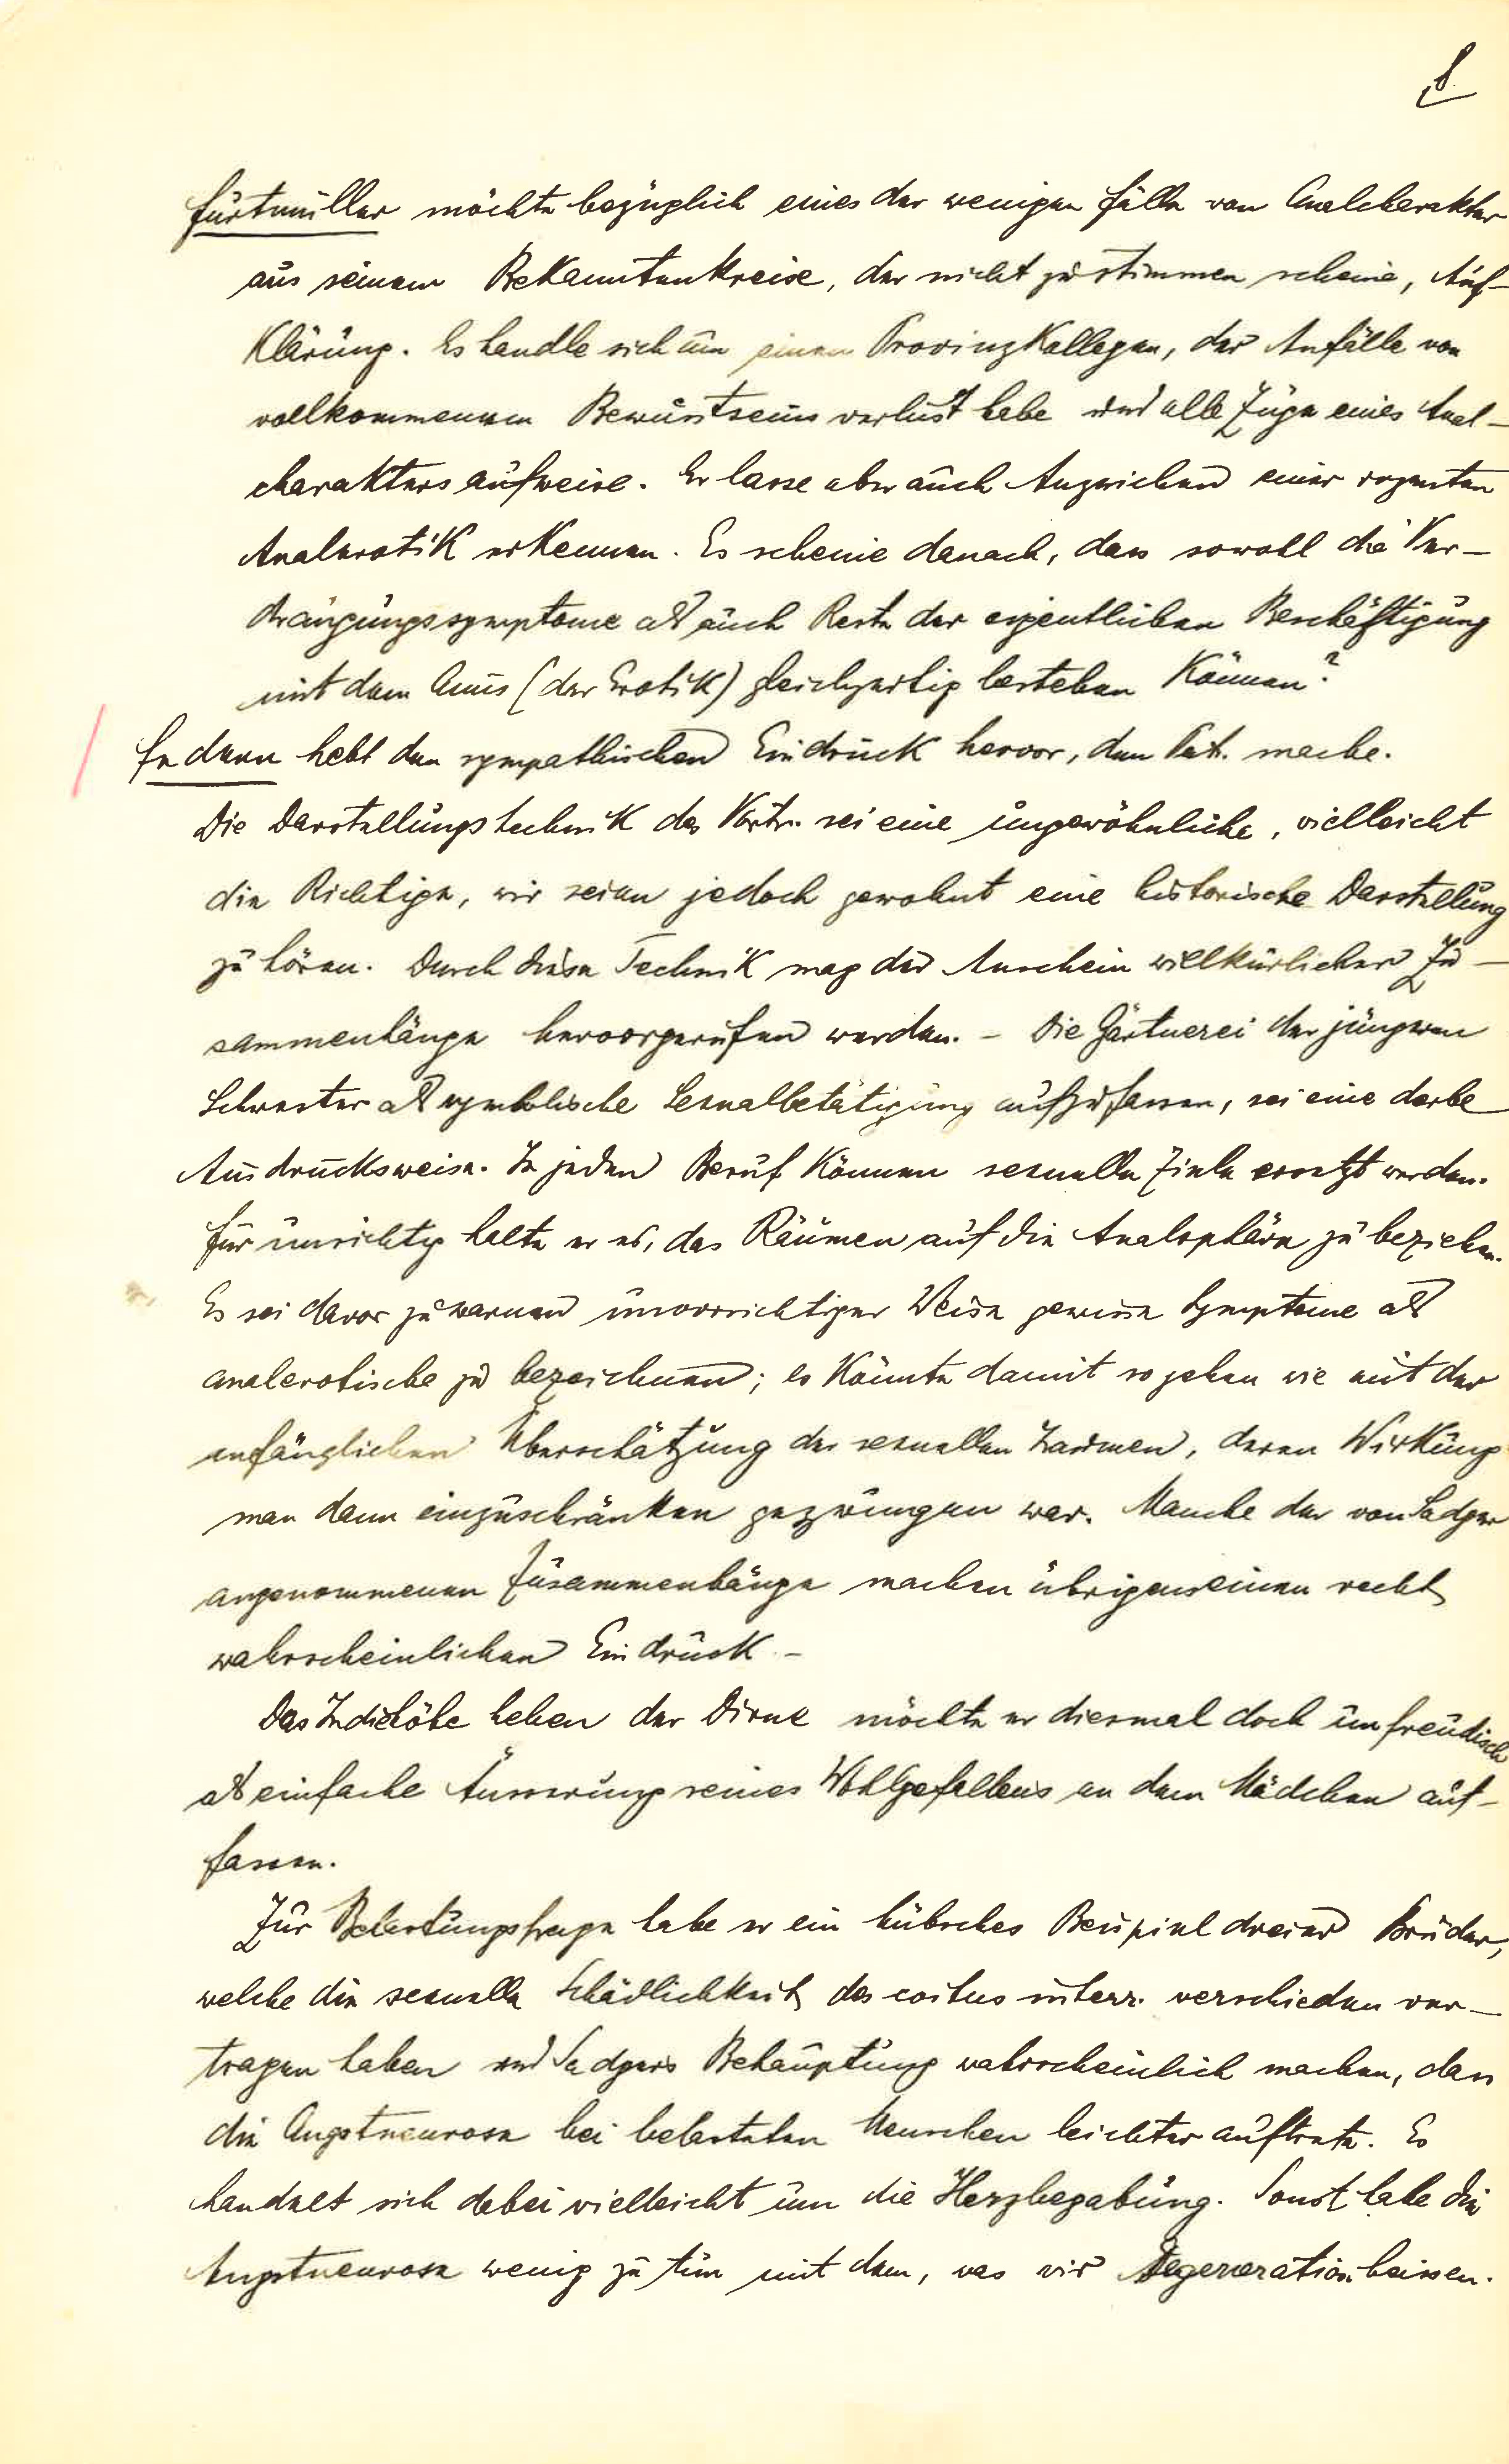 8
Furtmüller möchte bezüglich eines der wenigen Fälle von Analcharakter
aus seinem Bekanntenkreise, der nicht zu stimmen scheine, Auf-
klärung. Es handle sich um einen Provinzkollegen, der Anfälle von
vollkommenem Bewusstseinsverlust habe und alle Züge eines Anal-
charakters aufweise. Er lasse aber auch Anzeichen einer
Analerotik erkennen. Es scheine danach, dass sowohl die Ver-
drängungssymptome als auch Reste der eigentlichen Beschäftigung
mit dem Anus (der Erotik) gleichzeitig bestehen können?
Federn hebt den sympathischen Eindruck hervor, den Pat. mache.
Die Darstellungstechnik des Vortr. sei eine ungewöhnliche, vielleicht
die Richtige, wir seien jedoch gewohnt eine historische Darstellung
zu hören. Durch diese Technik mag der Anschein willkürlicher Zu-
sammenhänge hervorgerufen werden. – Die Gärtnerei der jüngeren
Schwester als symbolische Sexualbetätigung aufzufassen, sei eine derbe
Ausdrucksweise. In jedem Beruf können sexuelle Ziele ersetzt werden.
Für unrichtig halte er es, das Räumen auf die Analsphäre zu beziehen.
Es sei davor zu warnen unvorsichtiger Weise gewisse Symptome als
analerotische zu bezeichnen; es könnte damit so gehen wie mit der
anfänglichen Überschätzung der sexuellen Traumen, deren Wirkung
man dann einzuschränken gezwungen war. Manche der von Sadger
angenommenen Zusammenhänge machen übrigens einen recht
wahrscheinlichen Eindruck –
Das Indiehöhe heben der Dirne möchte er diesmal doch unfreudisch
als einfache Äusserung seines Wohlgefallens an dem Mädchen auf-
fassen.
Zur Belastungsfrage habe er ein hübsches Beispiel dreier Brüder,
welche die sexuelle Schädlichkeit des coitus interr. verschieden ver-
tragen haben und Sadgers Behauptung wahrscheinlich machen, dass
die Angstneurose bei belasteten Menschen leichter auftrete. Es
handelt sich dabei vielleicht um die Herzbegabung. Sonst habe die
Angstneurose wenig zu tun mit dem, was wir Degeneration heissen.